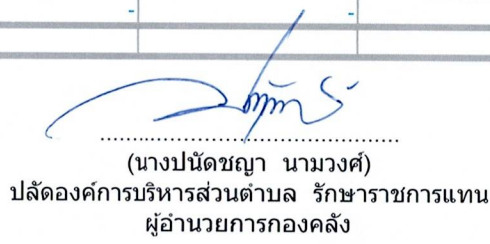 - -
(นางปนัดชญา นามวงศ์)
ปลัดองค์การบริหารส่วนตำบล รักษาราชการแทน
ผู้อำนวยการกองคลัง